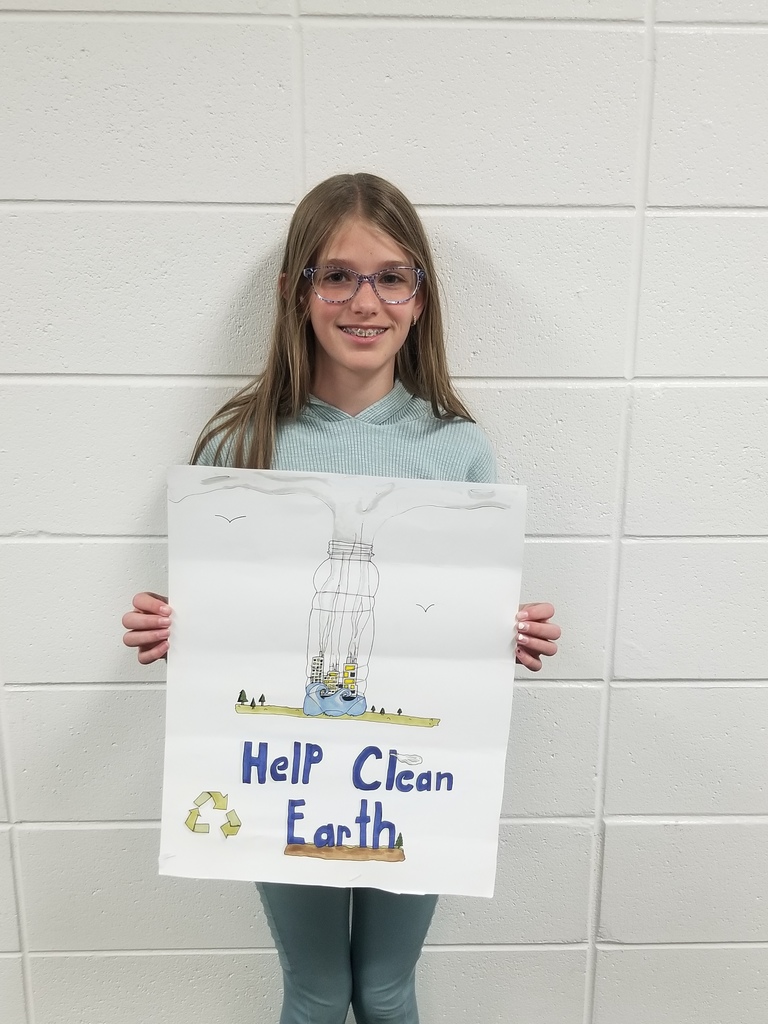 Help Clean
Earth